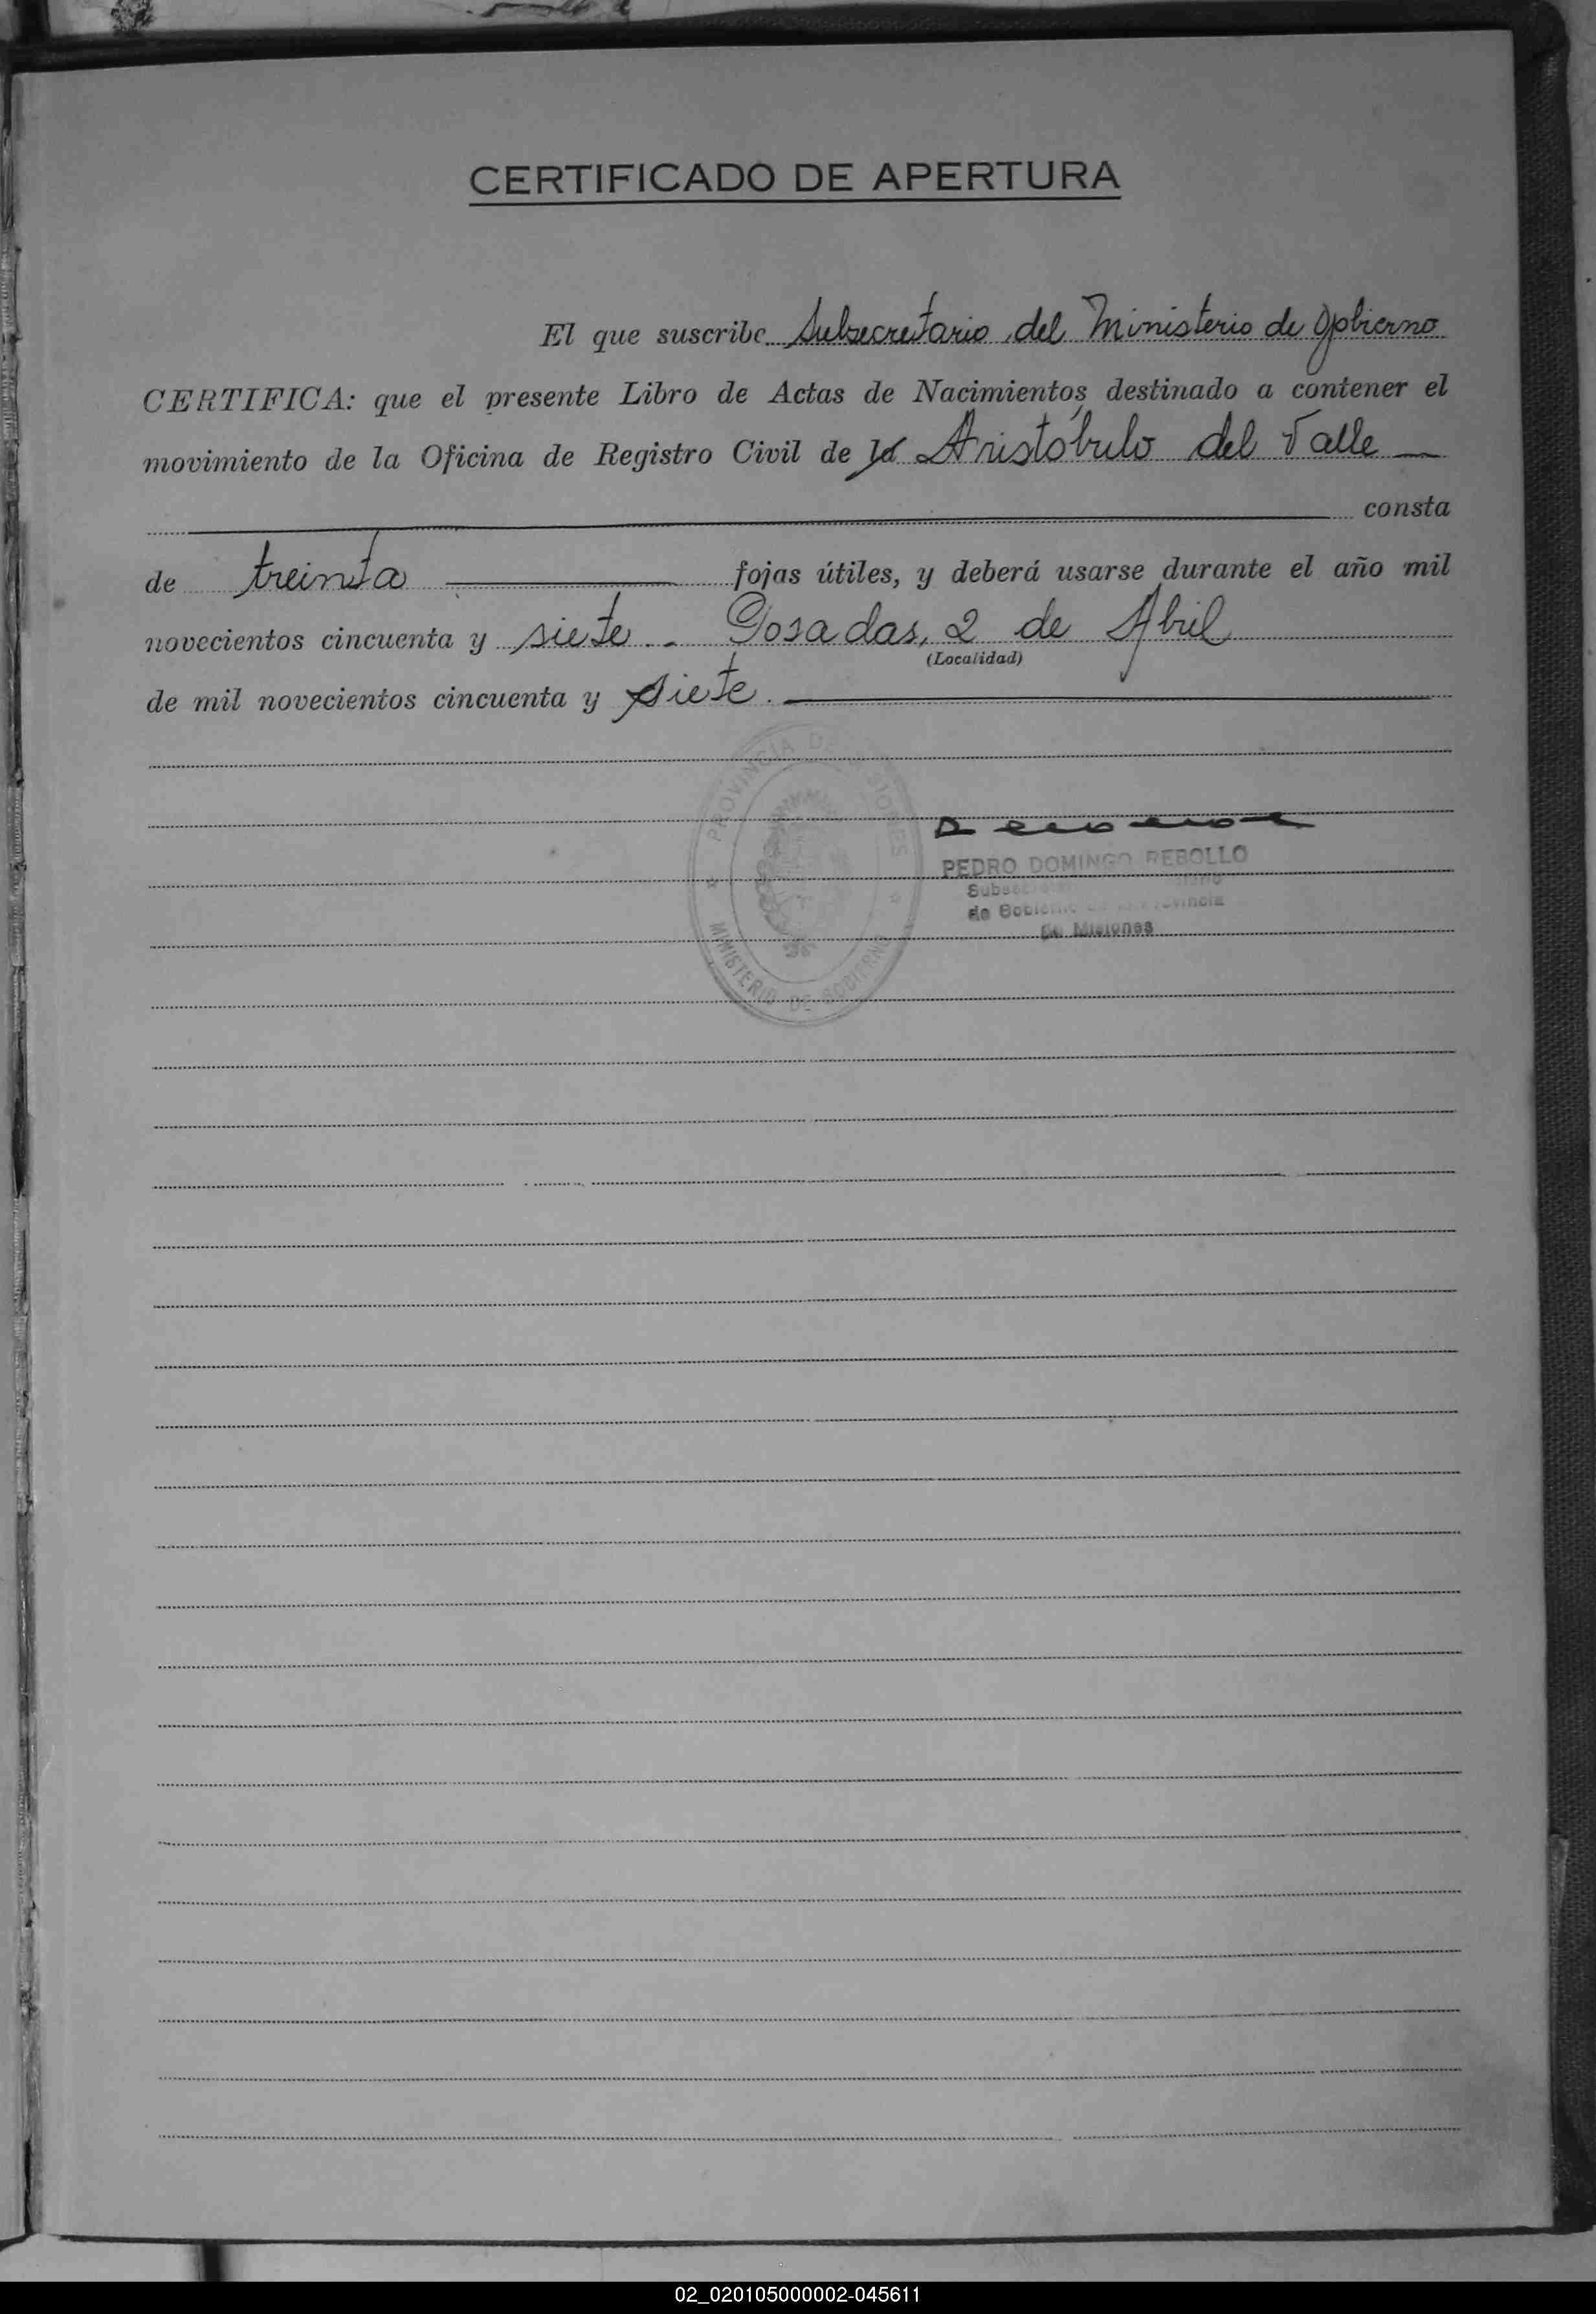 CERTIFICADO DE APERTURA
El que suscribe Subsecretario del Ministerio de Gobierno
CERTIFICA: que el presente Libro de Actas de Nacimientos destinado a contener el
movimiento de la Oficina de Registro Civil de la Aristóbulo del Valle
consta
de treinta fojas útiles, y deberá usarse durante el año mil
novecientos cincuenta y siete. Posadas, 2 de Abril
(Localidad)
de mil novecientos cincuenta y siete.
PROVINCIA DE MISIONES
MINISTERIO DE GOBIERNO
PEDRO DOMINGO REBOLLO
de Gobierno de la Provincia
de Misiones
02_020105000002-045611